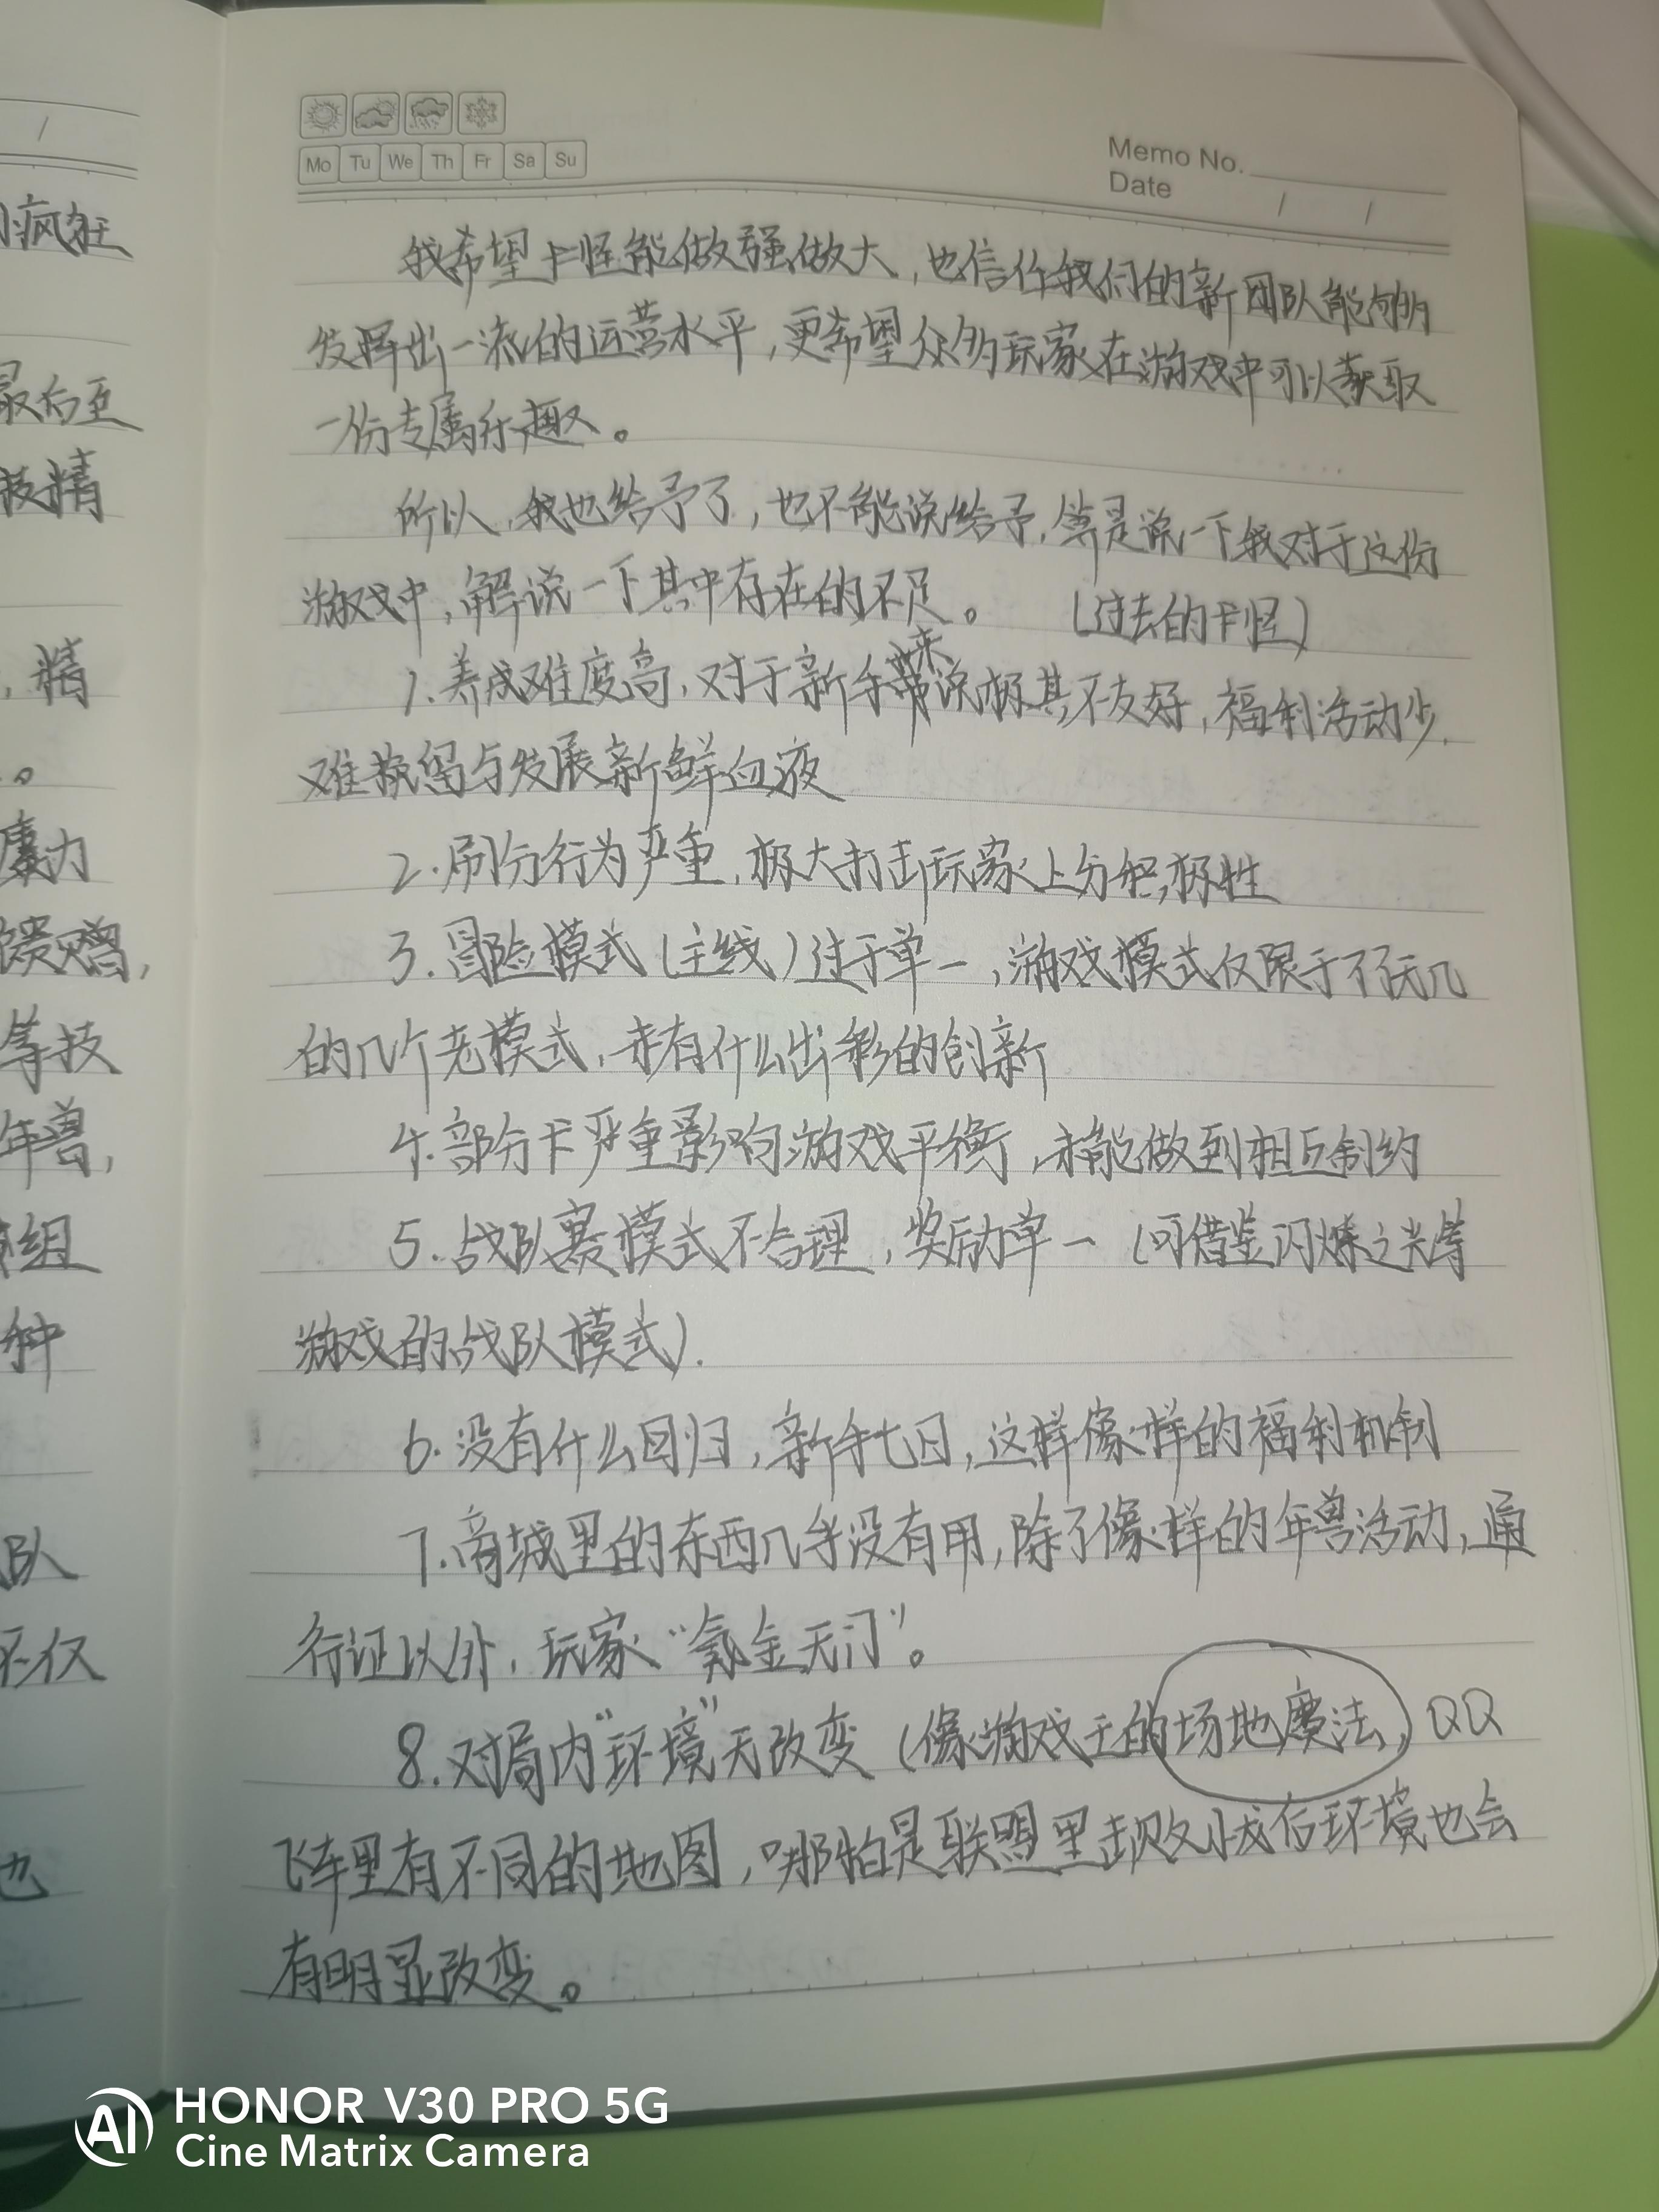 Mo Tu We Th Fr Sa Su
Memo No.
Date / /
我希望卡怪能做强做大,也信任我们的新团队能够
发挥出一流的运营水平,更希望众多玩家在游戏中可以获取
一份专属乐趣。
所以,我也给予了,也不能说给予,算是说一下我对于这份
游戏中,解说一下其中存在的不足。 (过去的卡怪)
1.养成难度高,对于新手来说极其不友好,福利活动少,
难挽留与发展新鲜血液
2.刷分行为严重,极大打击玩家上分积极性
3.冒险模式(主线)过于单一,游戏模式仅限于了无几
的几个老模式,未有什么出彩的创新
4.部分卡严重影响游戏平衡,未能做到相互制约
5.战队赛模式不合理,奖励单一(可借鉴闪烁之光等
游戏的战队模式).
6.没有什么回归,新手七日,这样像样的福利机制
7.商城里的东西几乎没有用,除了像样的年兽活动,通
行证以外,玩家“氪金无门”。
8.对局内“环境”无改变(像游戏王的场地魔法),QQ
飞车里有不同的地图,哪怕是联盟里击败小龙后环境也会
有明显改变。
/
疯狂
最后至
技精
,精
。
魔力
馈赠,
等技
年兽,
组
种
队
不仅
也
HONOR V30 PRO 5G
AI Cine Matrix Camera